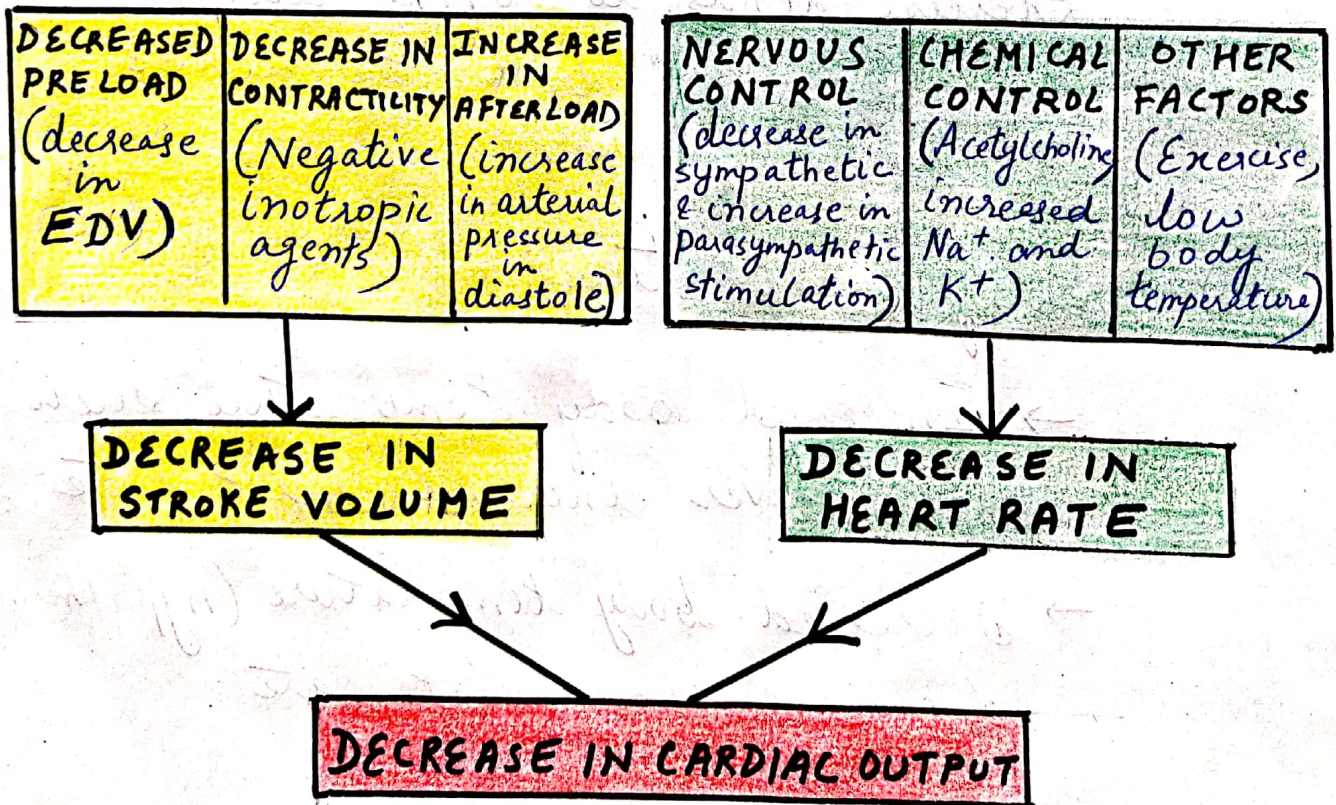 DECREASED
PRELOAD
(decrease
in
EDV)
DECREASE IN
CONTRACTILITY
(Negative
inotropic
agents)
INCREASE
IN
AFTERLOAD
(increase
in arterial
pressure
in
diastole)
NERVOUS
CONTROL
(decrease in
sympathetic
& increase in
parasympathetic
stimulation)
CHEMICAL
CONTROL
(Acetylcholine,
increased
Na+ and
K+)
OTHER
FACTORS
(Exercise,
low
body
temperature)
DECREASE IN
STROKE VOLUME
DECREASE IN
HEART RATE
DECREASE IN CARDIAC OUTPUT